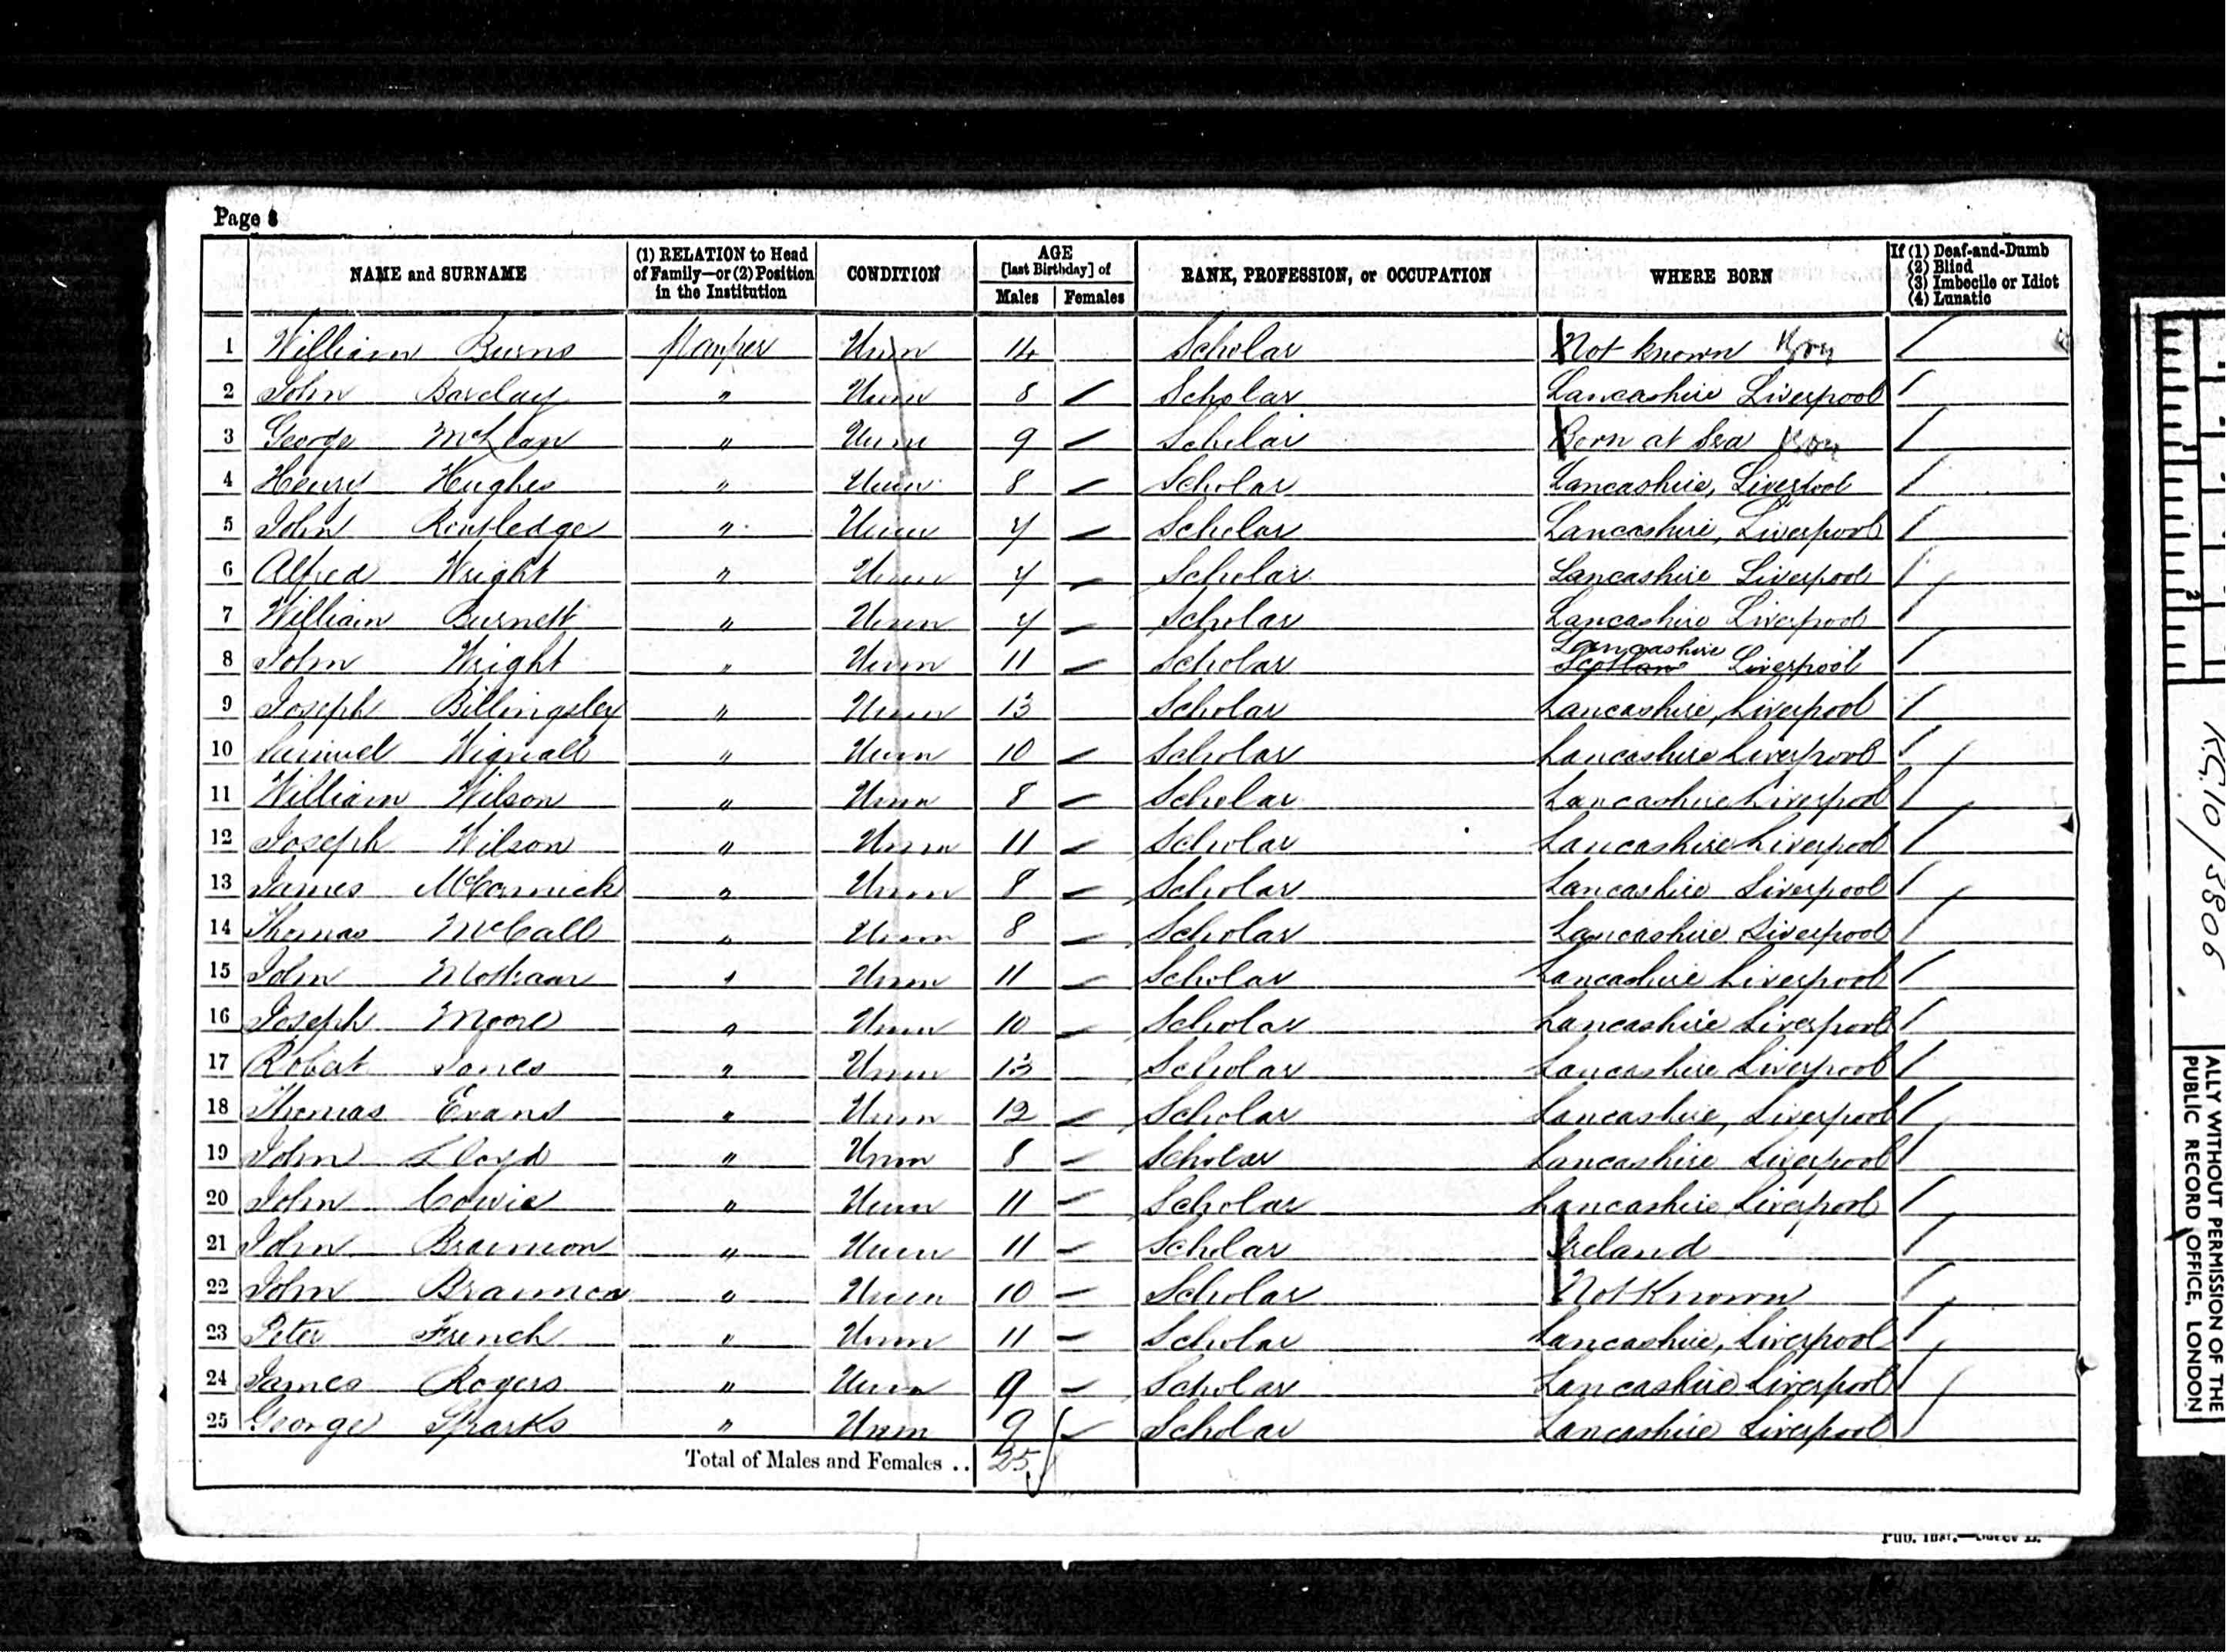 Page 8
NAME and SURNAME (1) RELATION to Head of Family—or (2) Position in the Institution CONDITION AGE [last Birthday] of Males Females RANK, PROFESSION, or OCCUPATION WHERE BORN If (1) Deaf-and-Dumb (2) Blind (3) Imbecile or Idiot (4) Lunatic
1 William Burns Pauper Unm 14 Scholar Not known
2 John Barclay " Unm 8 Scholar Lancashire Liverpool
3 George McLean " Unm 9 Scholar Born at Sea
4 Henry Hughes " Unm 8 Scholar Lancashire, Liverpool
5 John Routledge " Unm 7 Scholar Lancashire, Liverpool
6 Alfred Wright " Unm 7 Scholar Lancashire Liverpool
7 William Burnett " Unm 7 Scholar Lancashire Liverpool
8 John Wright " Unm 11 Scholar Lancashire Liverpool
9 Joseph Billingsley " Unm 13 Scholar Lancashire, Liverpool
10 Samuel Wignall " Unm 10 Scholar Lancashire Liverpool
11 William Wilson " Unm 8 Scholar Lancashire Liverpool
12 Joseph Wilson " Unm 11 Scholar Lancashire Liverpool
13 James McCormick " Unm 8 Scholar Lancashire Liverpool
14 Thomas McCall " Unm 8 Scholar Lancashire Liverpool
15 John " Unm 11 Scholar Lancashire Liverpool
16 Joseph Moore " Unm 10 Scholar Lancashire Liverpool
17 Robert Jones " Unm 13 Scholar Lancashire Liverpool
18 Thomas Evans " Unm 12 Scholar Lancashire, Liverpool
19 John Lloyd " Unm 8 Scholar Lancashire Liverpool
20 John Cowie " Unm 11 Scholar Lancashire Liverpool
21 John Brannon " Unm 11 Scholar Ireland
22 John " Unm 10 Scholar Not Known
23 Peter French " Unm 11 Scholar Lancashire, Liverpool
24 James Rogers " Unm 9 Scholar Lancashire Liverpool
25 George Sparks " Unm 9 Scholar Lancashire Liverpool
Total of Males and Females .. 25
R.G. 10/3806
ALLY WITHOUT PERMISSION OF THE
PUBLIC RECORD OFFICE, LONDON